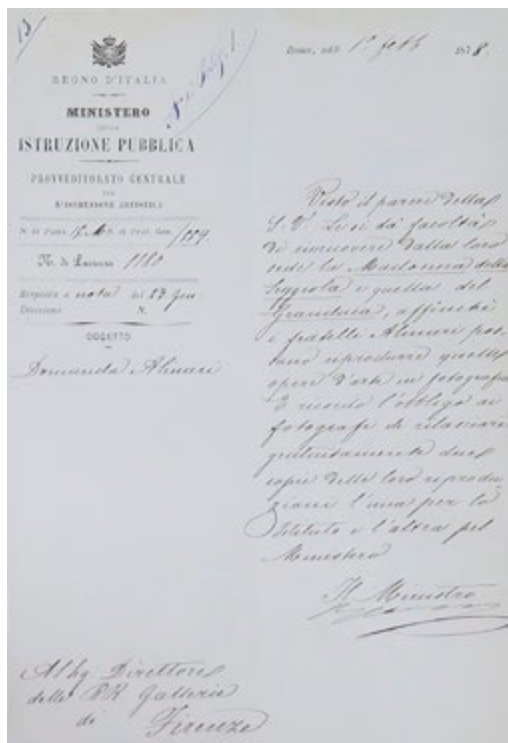 13
REGNO D'ITALIA
MINISTERO
DELLA
ISTRUZIONE PUBBLICA
PROVVEDITORATO CENTRALE
PER
L'ISTRUZIONE ARTISTICA
N. di Prot. Gen.
N. di Partenza 1180
Risposta a nota del 23 Gen.
Divisione N.
OGGETTO
Domanda Alinari
Roma, addì 1° febb 1878.
Visto il parere della
S. V. Le si dà facoltà
di rimuovere dalla loro
sede la Madonna della
Seggiola e quella del
Granduca, affinchè
i fratelli Alinari pos-
sano riprodurre quelle
opere d'arte in fotografia
E ricordo l'obbligo ai
fotografi di rilasciare
gratuitamente due
copie delle loro riprodu-
zioni l'una per lo
Istituto e l'altra pel
Ministero
Il Ministro
Al Sig Direttore
delle RR Gallerie
di Firenze